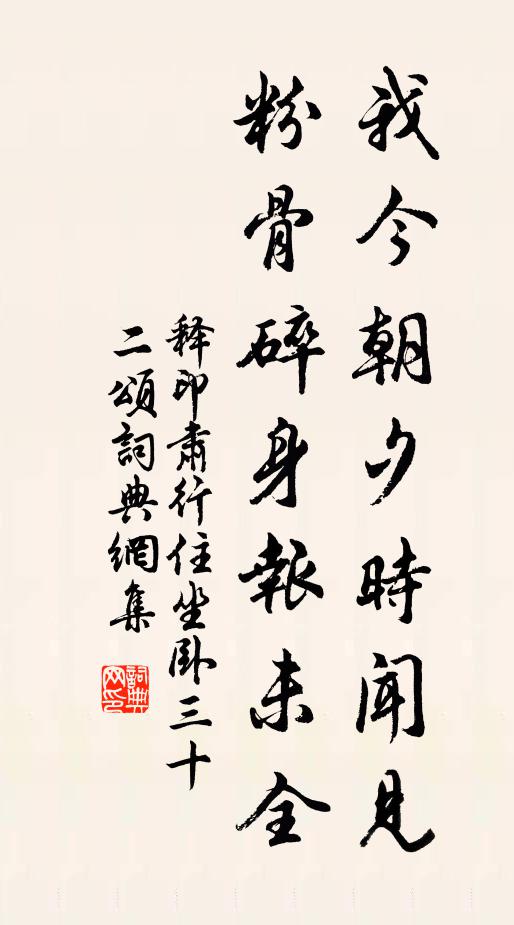 我今朝夕時聞見
粉骨碎身報未全
释印肅行住坐卧三十
二頌詞典網集
詞典网印